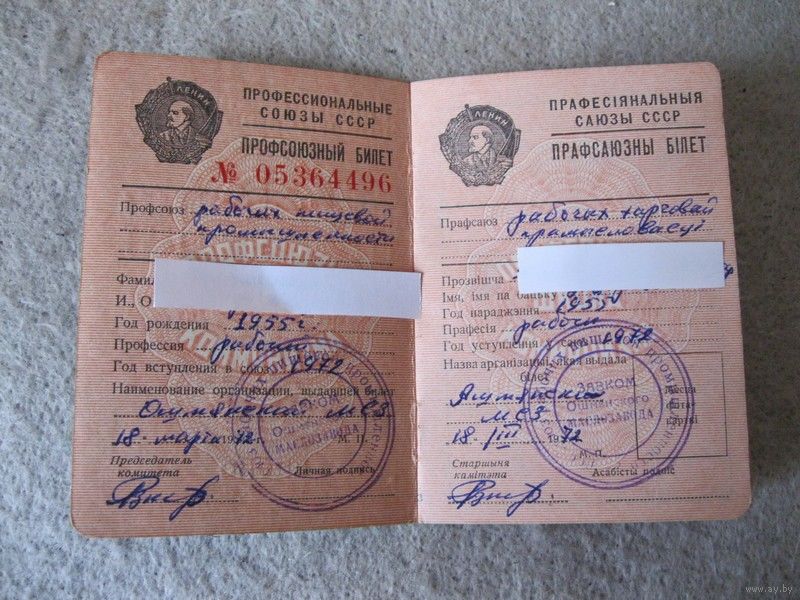 ЛЕНИН
ПРОФЕССИОНАЛЬНЫЕ
СОЮЗЫ СССР
ПРОФСОЮЗНЫЙ БИЛЕТ
№ 05364496
Профсоюз рабочих пищевой
промышленности
Фамил
И., О
Год рождения 1955 г.
Профессия рабочий
Год вступления в союз 1972
Наименование организации, выдавшей билет
Ошмянский МСЗ
18 марта 1972 г.
М. П.
Председатель
комитета
Личная подпись
ЛЕНИН
ПРАФЕСІЯНАЛЬНЫЯ
САЮЗЫ СССР
ПРАФСАЮЗНЫ БІЛЕТ
Прафсаюз рабочих харчовай
прамысловасці
Прозвішча
Імя, імя па бацьку
Год нараджэння 1955
Прафесія рабочы
Год уступлення ў саюз 1972
Назва арганізацыі, якая выдала
білет
МСЗ
18/III 1972
М. П.
Месца
фота-
карткі
Старшыня
камітэта
Асабісты подпіс
ЗАВКОМ
Ошмянского
МАСЛОЗАВОДА
www.ay.by